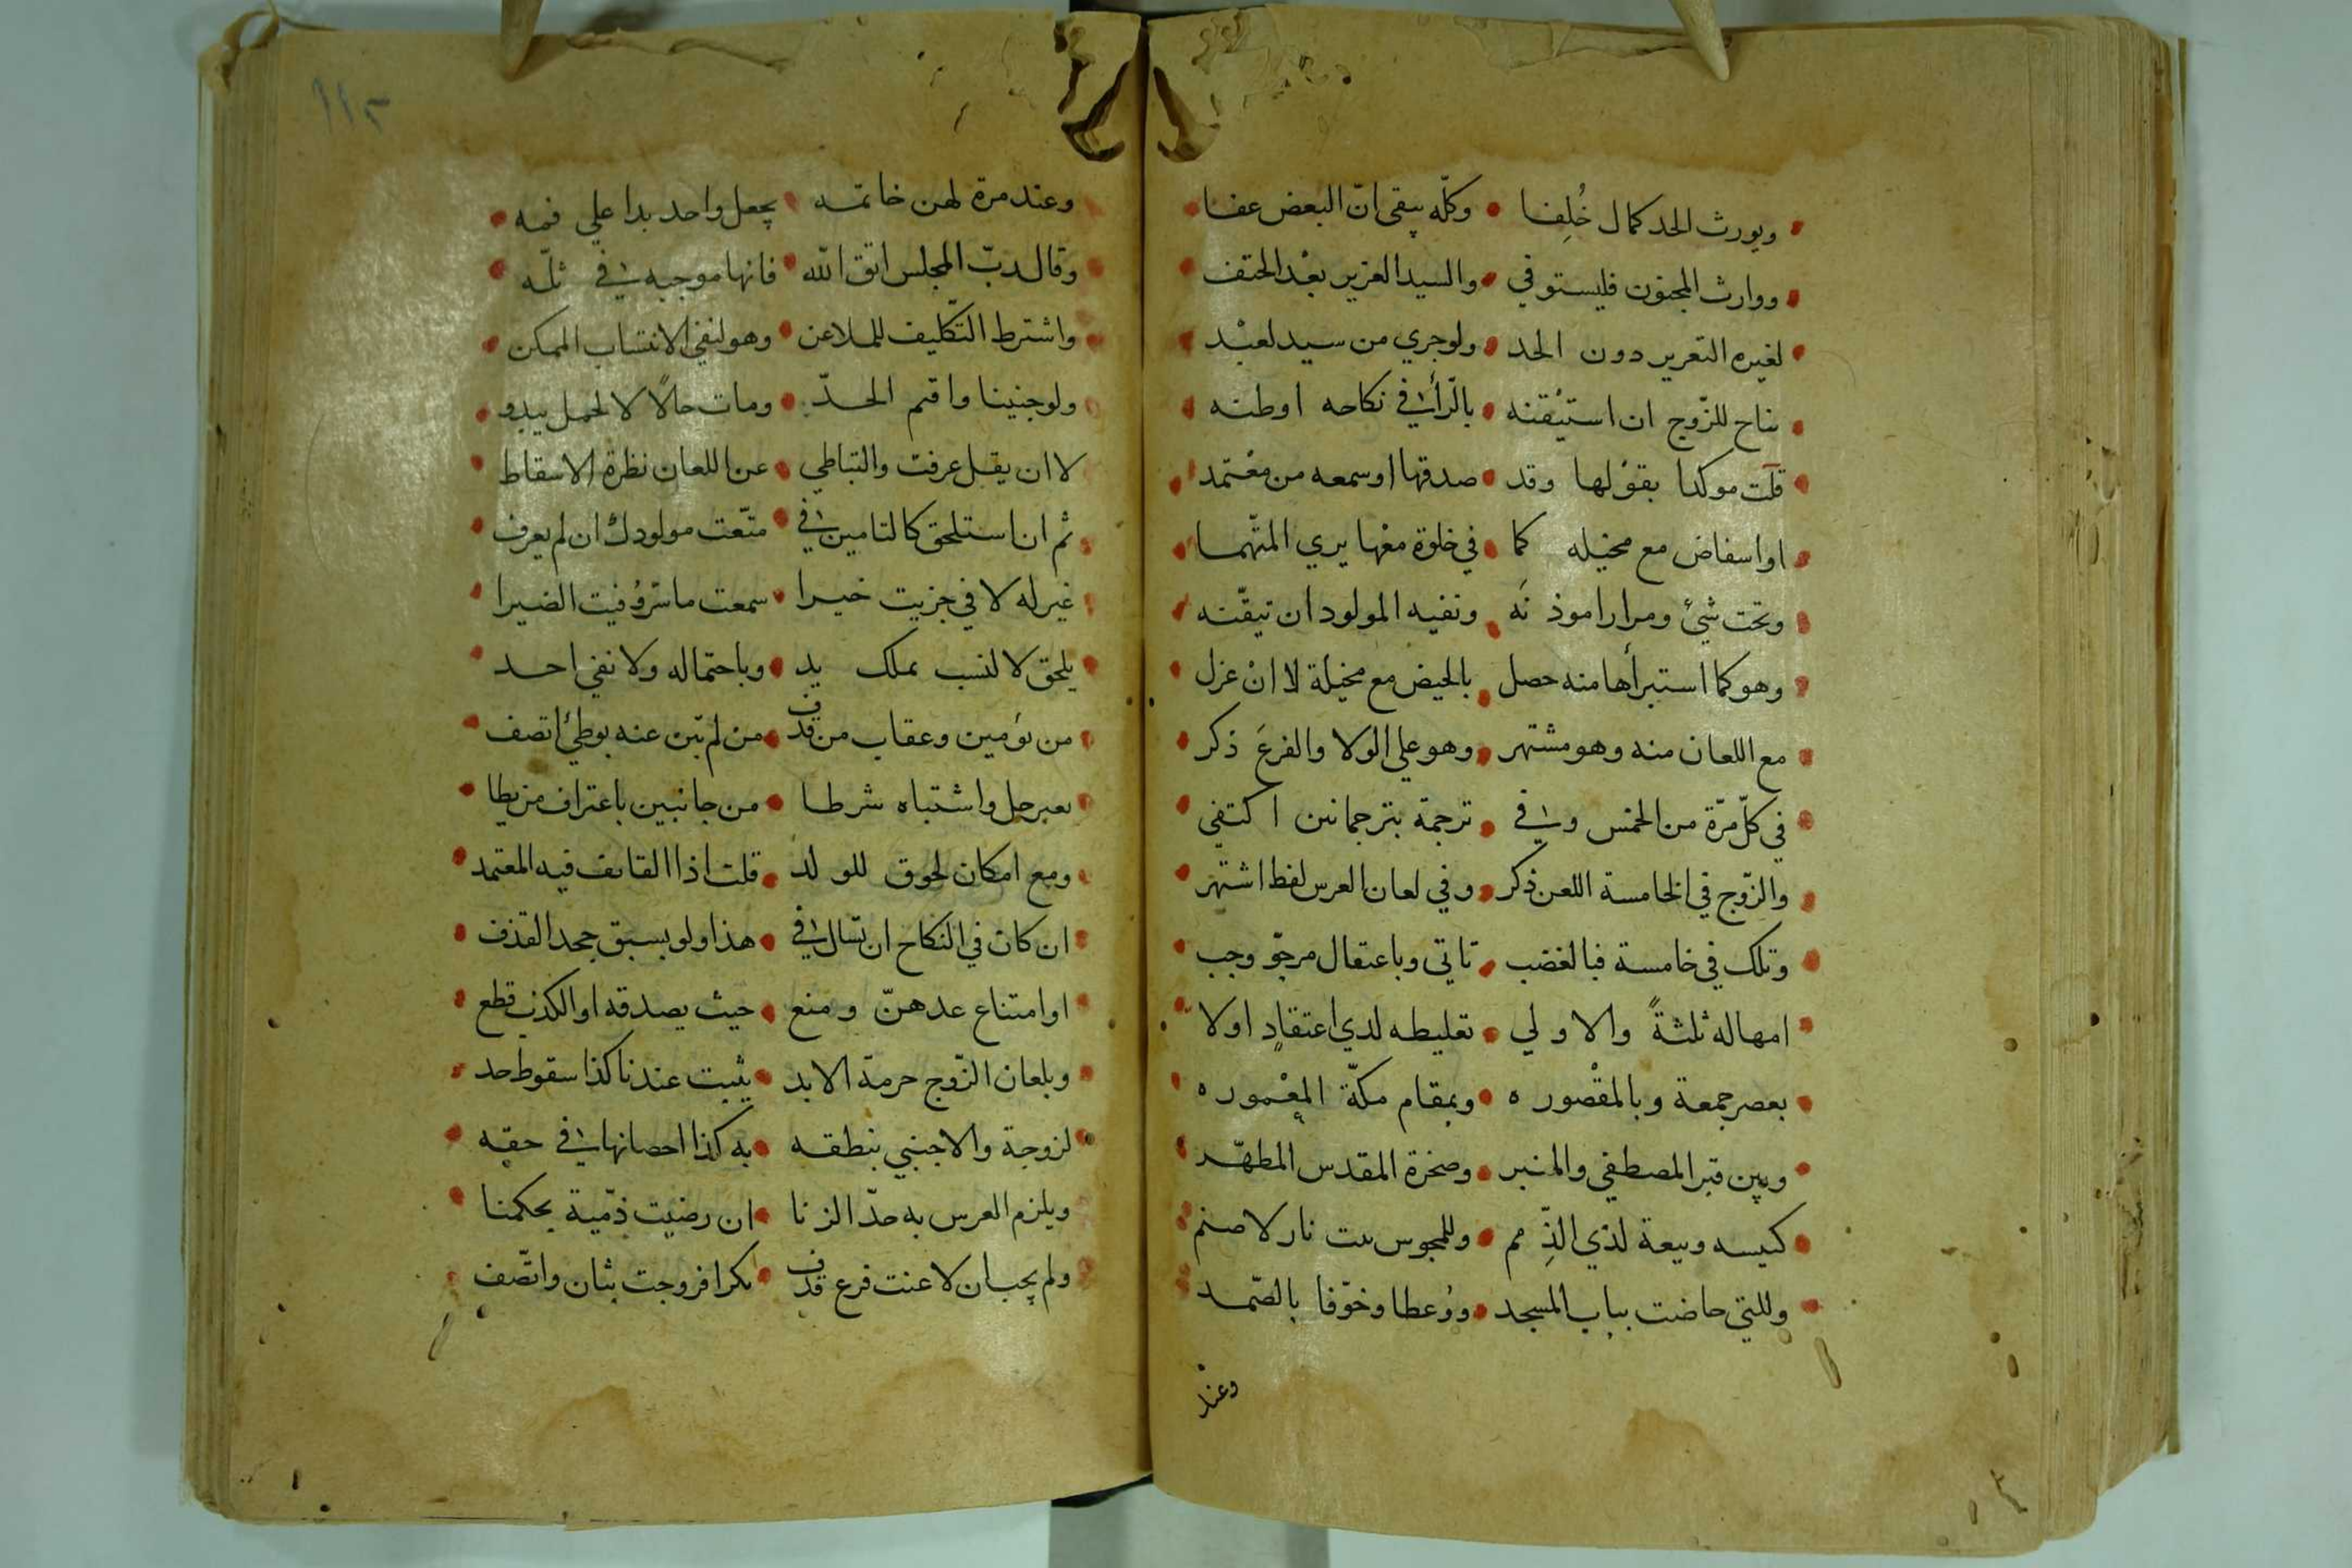 ويورث الحد كمال خُلِفا • وكلّه يبقى انّ البعض عفا
ووارث المجنون فليستوفي • والسيد العزير بعْد الحتف
لغيره التعرير دون الحد • ولوجري من سيد لعبْد
يناح للزّوج ان استيْقنه • بالرّأي في نكاحه اوطنه
قلت موكدا بقوْلها وقد • صدقها اوسمعه من معْتمد
اواسفاض مع مخيله كما • في خلوة معْها يري المتّهما
وتحت شيئ ومرارا موذنَه • ونفيه المولود ان تيقّنه
وهو كما استبرأها منه حصل • بالحيض مع مخيلة لا انْ عزل
مع اللعان منه وهو مشتهر • وهو علي الولا والفرعَ ذكر
في كلّ مرّة من الخمس وفي • ترجمة بترجمانين اكتفي
والزّوج في الخامسة اللعن ذكر • وفي لعان العرس لفظ اشتهر
وتلك في خامسة فبالغضب • تاتي وباعتقال مرجوّ وجب
امهاله ثلثةً والاولي • تغليظه لدي اعتقادٍ اولا
بعصر جمعة وبالمقْصوره • وبمقام مكّة المعْموره
وبين قبر المصطفي والمنبر • وصخرة المقدس المطهّر
كنيسه وبيعة لذي الذِّمم • وللمجوس بيت نار لا صنم
وللتي حاضت بباب المسجد • ووُعظا وخوّفا بالصّمد
وعنْد
١١٥
وعند مرة لهن خاتمه • يجعل واحد يدا علي فمه
وقال ربّ المجلس اتق الله • فانها موجبه في ثلّه
واشترط التّكليف للملاعن • وهو لنفي الانتساب الممكن
ولو جنينا واقيم الحدّ • ومات حالًا لا لحمل يبدو
لا ان يقل عرفت والتباطي • عن اللعان نظرة الاسقاط
ثم ان استلحق كالتامين في • متّعت مولودك ان لم يعرف
غير له لا في جزيت خيرا • سمعت ما سرّ وُفيت الضيرا
يلحق لا لنسب بملك يد • وباحتماله ولا نفي احد
من توٌمين وعقاب من قذف • من لم تبن عنه بوطئ اتصف
بعير حل واشتباه شرطا • من جانبين باعتراف من يطا
ومع امكان لحوق للولد • قلت اذا القايف فيه المعتمد
ان كان في النّكاح ان تسال في • هذا ولو بسبق جحد القذف
او امتناع عدهنّ ومنع • حيث يصدقه او الكذب قطع
وبلعان الزّوج حرمة الابد • يثبت عندنا كذا سقوط حد
لزوجة والاجنبي بنطقه • به كذا احصانها في حقه
ويلزم العرس به حدّ الزنا • ان رضيت ذمّية بحكمنا
ولم يجب ان لاعنت فرع قذف • بكرا فزوجت بثان واتّصف